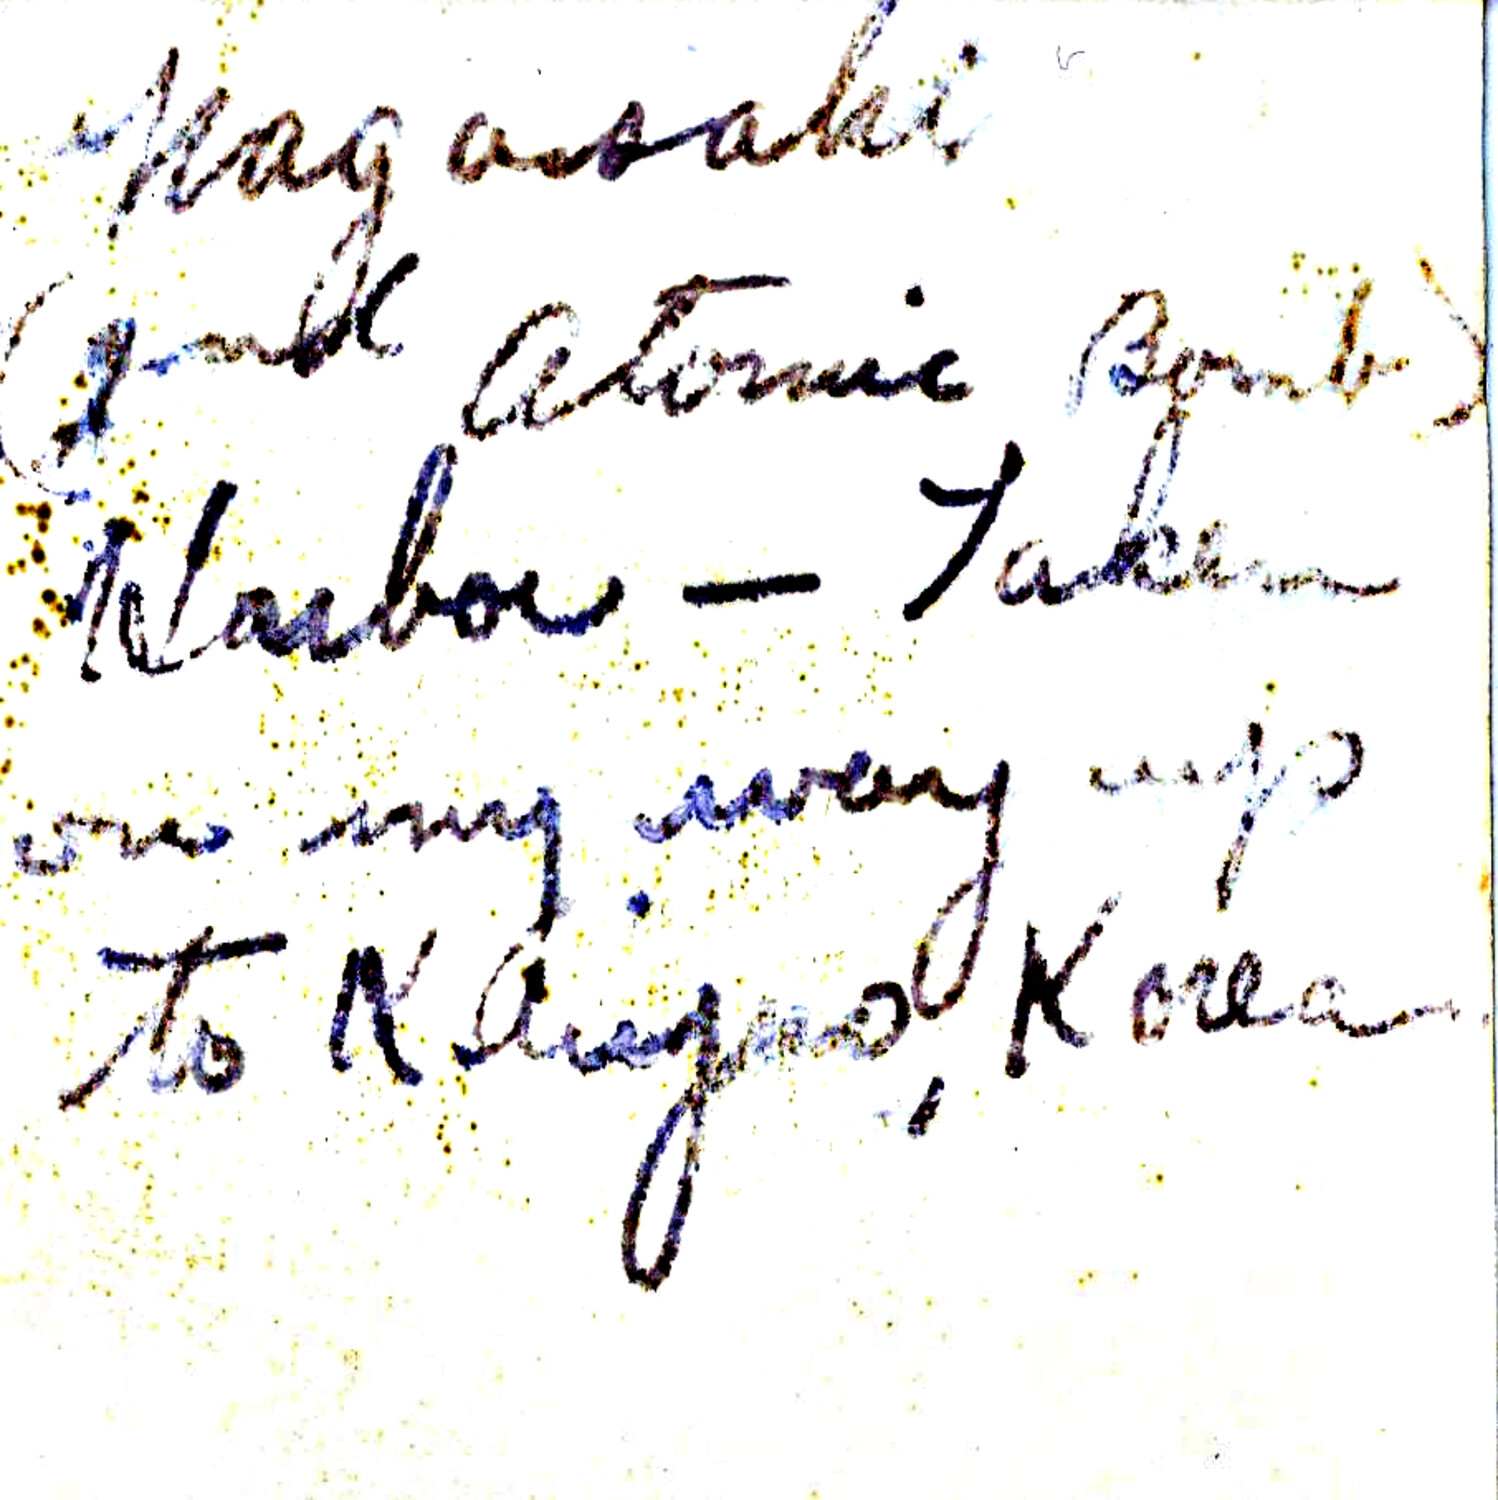 Nagasaki
(2nd Atomic Bomb)
Harbor — Taken
on my way up
to Korea